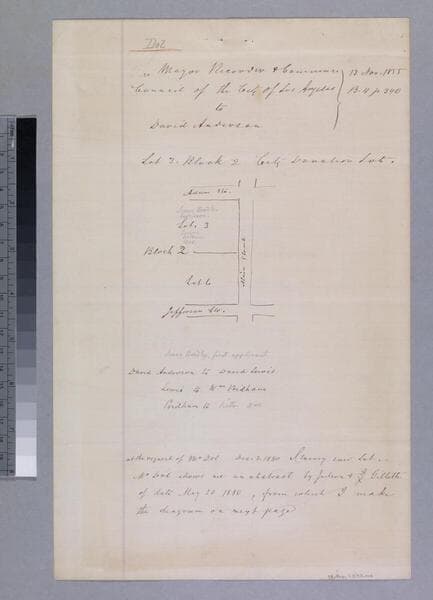 Dol
Mayor Recorder & Common
Council of the City of Los Angeles
to
David Anderson
13 Nov. 1855
B. 4 p 340
Lot 3. Block 2 City Donation Lots.
Adam St.
Lot. 3
Block 2
Main Street
Lot 6
Jefferson St.
first applicant
David Anderson to David Lewis
Lewis to Wm Pridham
Pridham to
at the request of Mr Dol Dec. 2. 1880 I survey said Lot.
Mr Dol shows me an abstract by Judson & Gillette
of date May 20 1880, from which I make
the diagram on next page